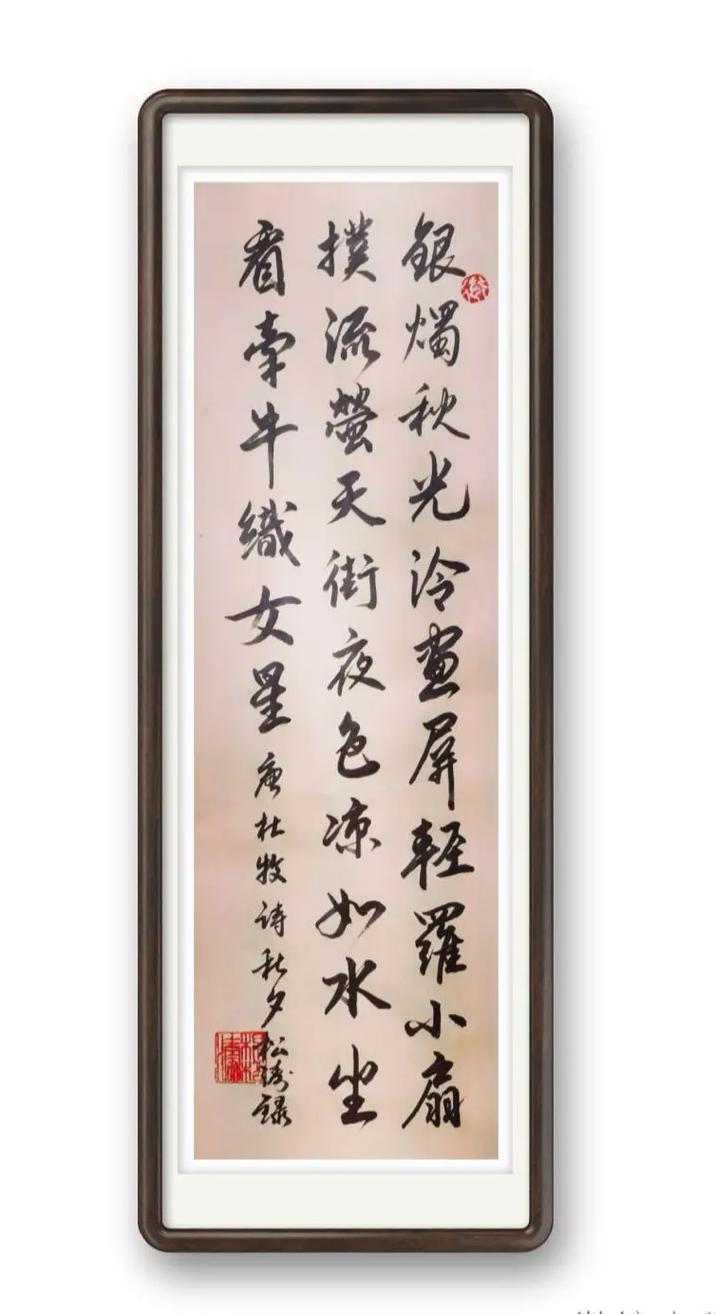 銀燭秋光冷畫屏輕羅小扇
撲流螢天街夜色凉如水坐
看牽牛織女星唐杜牧詩秋夕松濤錄